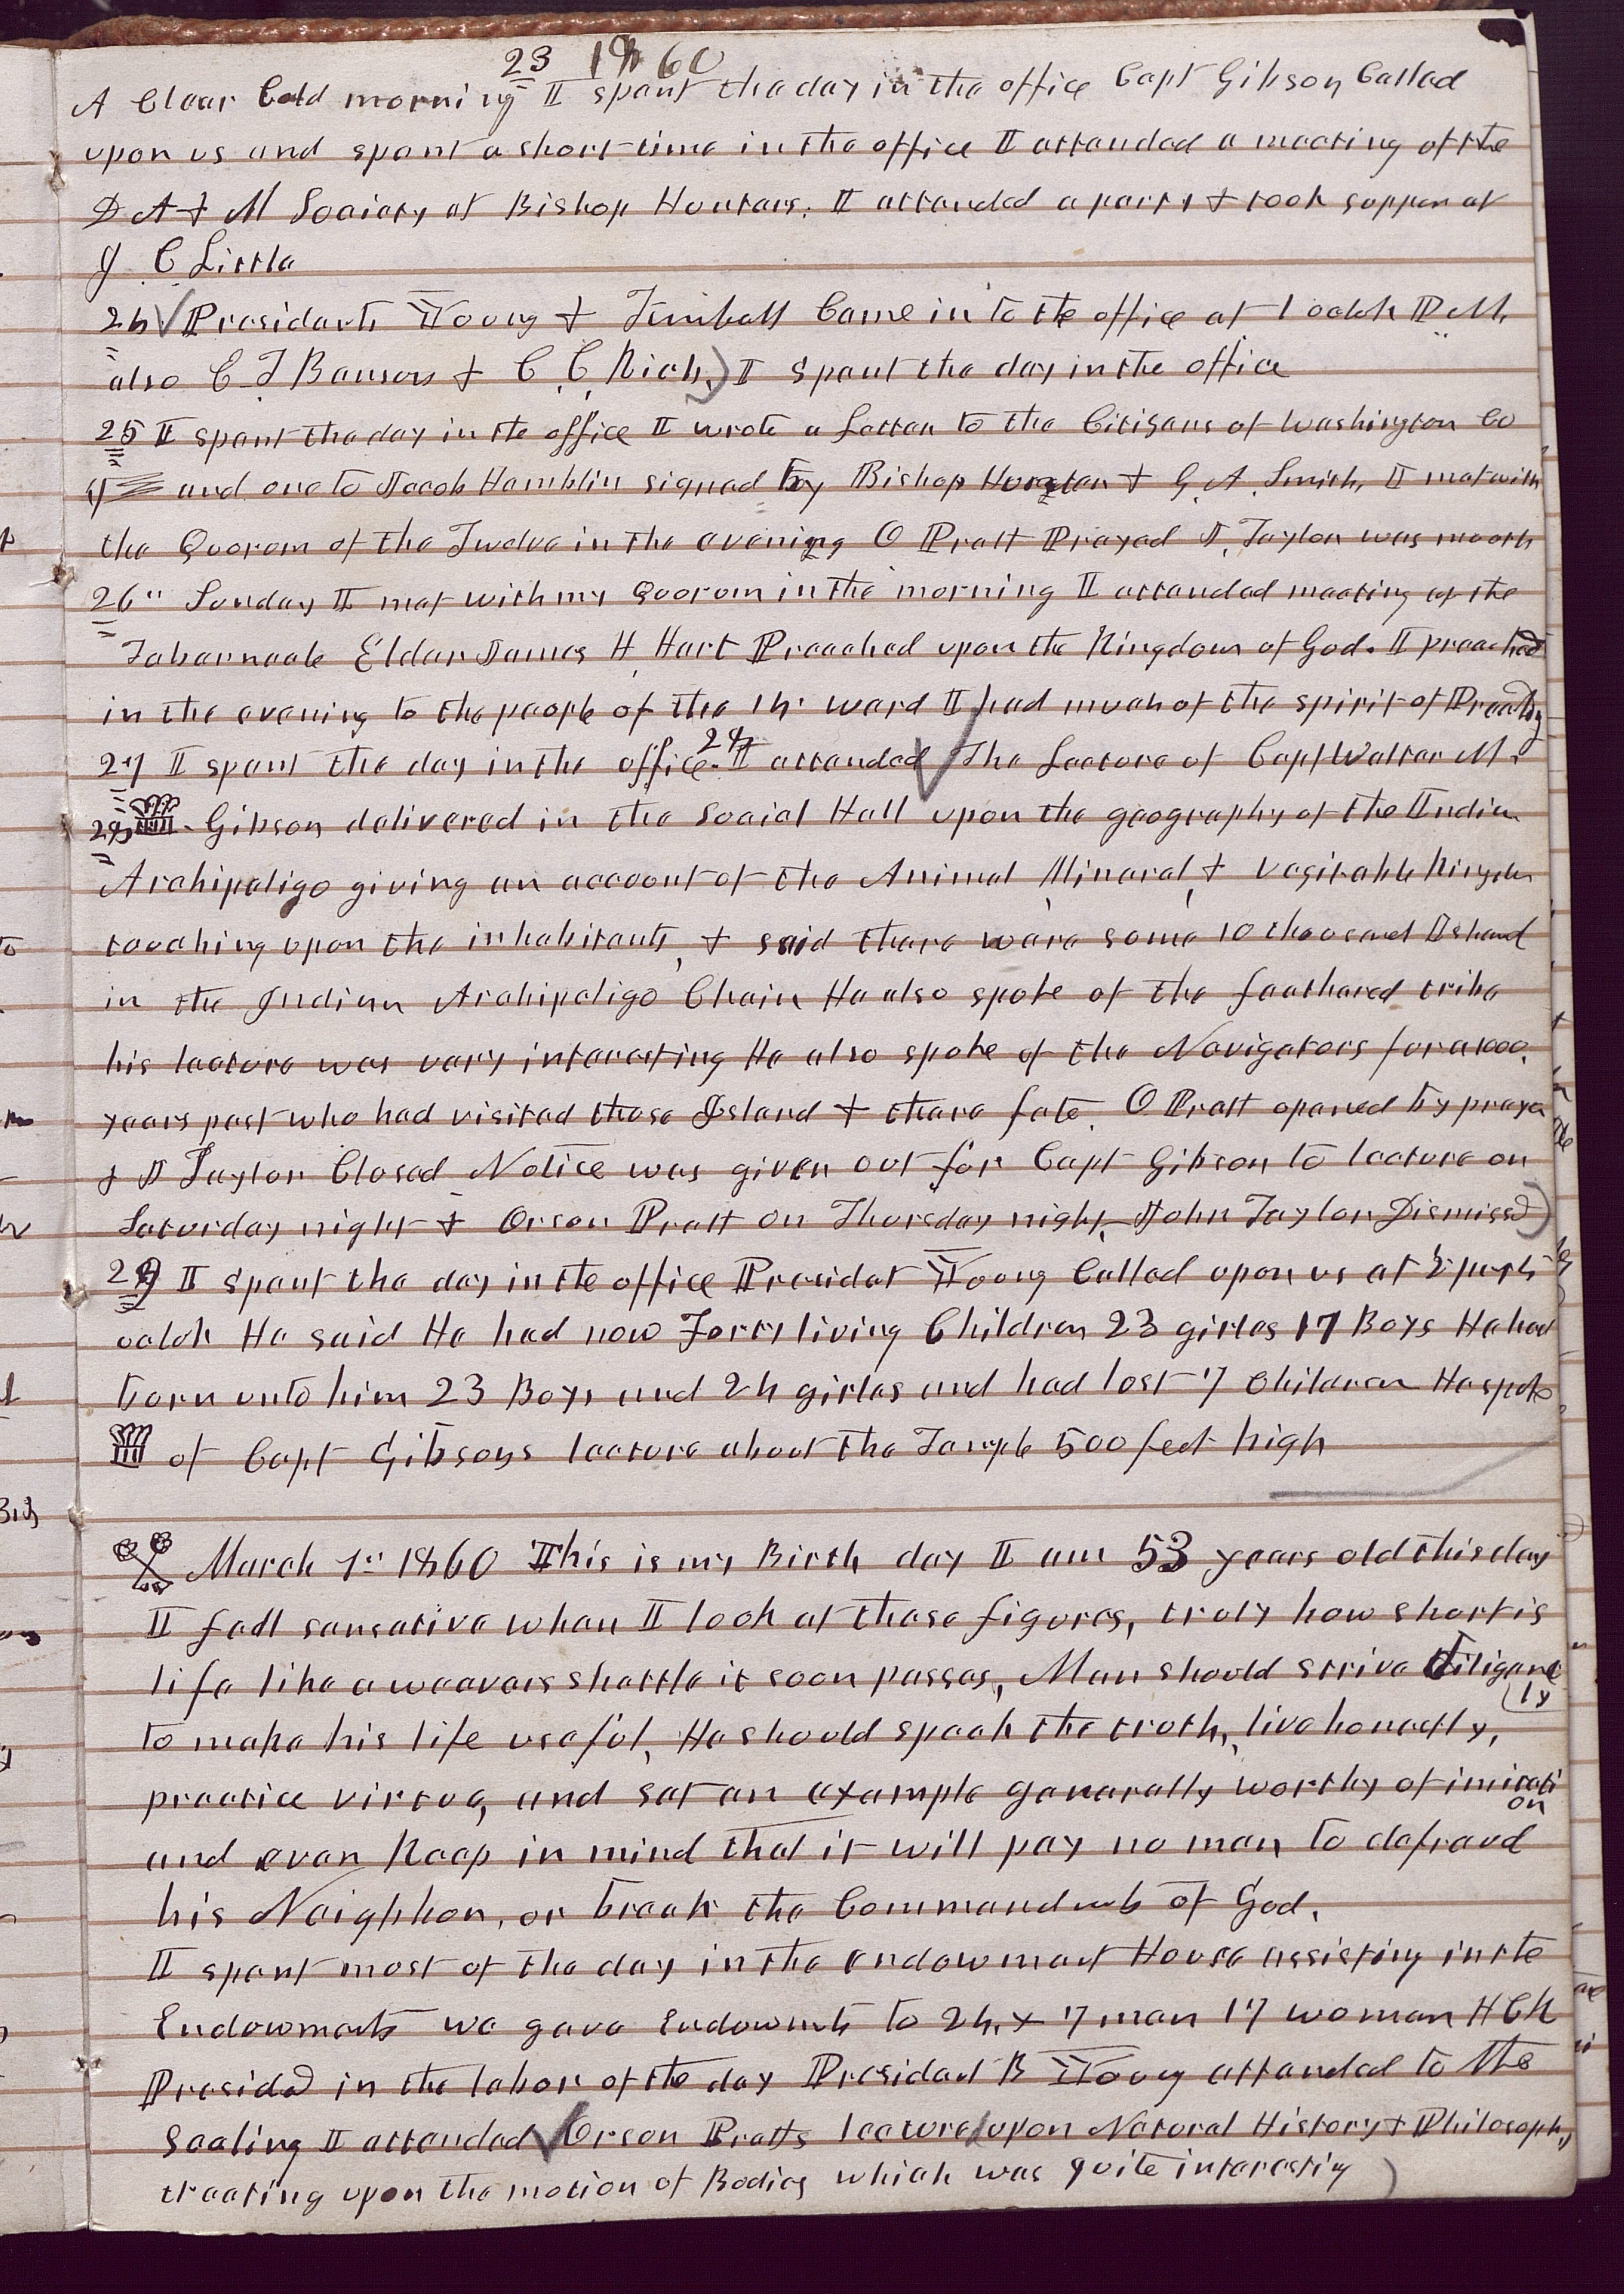 23 1860
A Clear Cold morning I spent the day in the office Capt Gibson Called
upon us and spent a short time in the office I attended a meeting of the
D A & M Society at Bishop Hunters. I attended a party & took supper at
J. C. Little
24 Presidents Young & Kimball Came into the office at 1 oclok PM.
also E T Benson & C. C. Rich, I spent the day in the office
25 I spent the day in the office I wrote a Letter to the Citizens of Washington Co
and one to Jacob Hamblin signed by Bishop Hunter & G. A. Smith, I met with
the Quorom of the Twelve in the evening O Pratt Prayed J. Taylor was mouth
26" Sunday I met with my Quorom in the morning I attended meeting at the
Tabernacle Elder James H Hart Preached upon the Kingdom of God. I preached
in the evening to the people of the 14. ward I had much of the spirit of Preaching
27 I spent the day in the office. 28 I attended The Lecture of Capt Walter M.
28 Gibson delivered in the Social Hall upon the geography of the Indian
Archipeligo giving an account of the Animal, Mineral, & vegitable Kingdom
touching upon the inhabitants, & said there were some 10 thousand Island
in the Indian Archipeligo Chain He also spoke of the feathered tribe
his lecture was very interesting He also spoke of the Navigators for 1000.
years past who had visited those Island & there fate. O Pratt opened by prayer
& J Taylor Closed Notice was given out for Capt Gibson to lecture on
Saturday night & Orson Pratt on Thursday night, John Taylor Dismissed
29 I spent the day in the office Presidet Young Called upon us at 2
oclok He said He had now Forty living Children 23 girles 17 Boys He had
born unto him 23 Boys and 24 girles and had lost 7 Children He spoke
of Capt Gibsons lecture about the Temple 500 feet high
March 1st 1860 This is my Birth day I am 53 years old this day
I feell sensative when I look at these figures, truly how short is
life like a weavers shuttle it soon passes, Man should strive diligent
ly
to make his life useful, He should speak the truth, live honestly,
practice virtue, and set an example generally worthy of imitati
on
and ever Keep in mind that it will pay no man to defraud
his Neighbor, or break the Commandmets of God.
I spent most of the day in the endowment House assisting in the
Endowmets we gave Endowmets to 24, & 7 men 17 women H C K
Presided in the labor of the day Presidet B Young attended to the
Sealing I attended Orson Pratts lecture upon Natural History & Philosophy
treating upon the motion of Bodies which was quite interesting